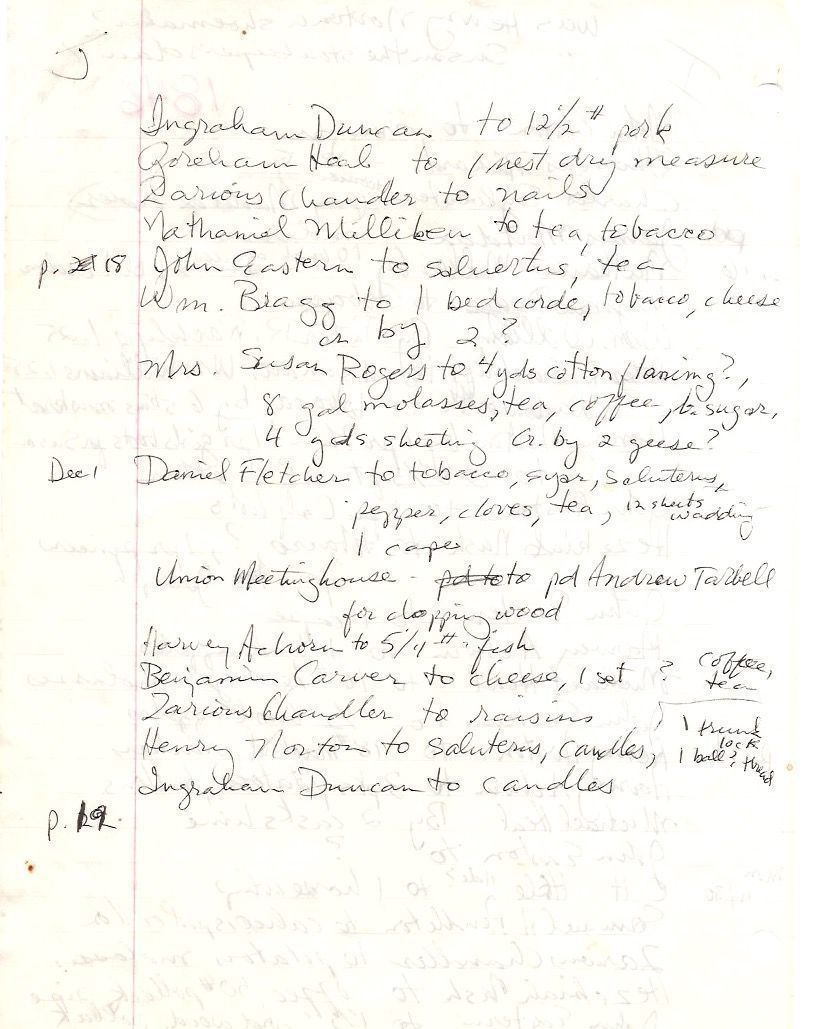 J
Ingraham Duncan to 12 1/2 # pork
Goreham Heal to 1 nest dry measure
Zarious Chandler to nails
Nathaniel Milliken to tea, tobacco
p. 18 John Eastern to saluertus, tea
Wm. Bragg to 1 bed corde, tobacco, cheese
cr by 2 ?
Mrs. Susan Rogers to 4 yds cotton flaning?,
8 gal molasses, tea, coffee, sugar,
4 yds sheeting Cr. by 2 geese?
Dec 1 Daniel Fletcher to tobacco, saluterus,
pepper, cloves, tea, 12 sheets wadding
1 cape
Union Meetinghouse - pd to to pd Andrew Tarbell
for chopping wood
Harvey Achorn to 5 1/4 # fish
Benjamin Carver to cheese, 1 set ? coffee, tea
Zarious Chandler to raisins
Henry Norton to saluterus, candles, 1 trunk lock 1 ball? thread
Ingraham Duncan to candles
p. 19